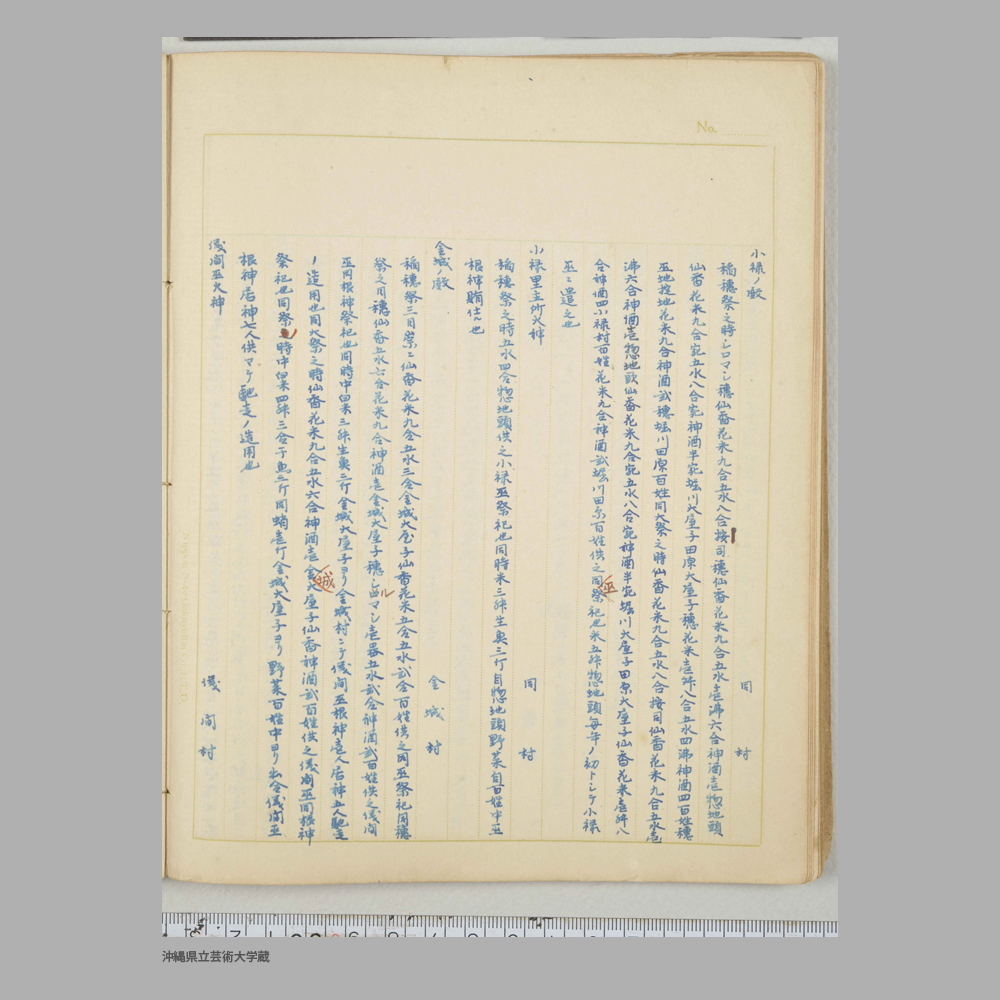 No.
小禄ノ殿 同村
稲穂祭之時シロマシ穂仙香花米九合五水八合按司穂仙香花米九合五水壱沸六合神酒壱惣地頭
仙香花米九合宛五水八合宛神酒半宛堀川大屋子田原大屋子穂花米壱升八合五水四沸神酒四百姓穂
五水壱沸六合神酒壱惣地頭仙香花米九合宛五水八合宛神酒半宛堀川大屋子田原大屋子仙香花米壱升八
合神酒四小禄村百姓花米九合神酒弐堀川田原百姓供之同祭祀也米五升惣地頭毎年ノ初トシケ小禄
巫ニ遣之也
小禄里主所火神 同村
稲穂祭之時五水四合惣地頭供之小禄巫祭祀也同時米三升生魚三斤自惣地頭野菜自百姓中巫
根神賄仕也
金城ノ殿 金城村
稲穂祭三日崇ニ仙香花米九合五水三合金城大屋子仙香花米五合五水弐合百姓供之同巫祭祀同穂
祭之同穂仙香五水六合花米九合神酒壱金城大屋子穂シロマシ壱器五水弐合神酒弐百姓供之儀間
巫同根神祭祀也同時中白米三升生魚三斤金城大屋子ヨリ金城村ニテ儀間巫根神壱人居神五人馳走
ノ造用也同大祭之時仙香花米九合五水六合神酒壱金城大屋子仙香神酒弐百姓供之儀間巫同根神
祭祀也同祭ノ時中白米四升三合干魚三斤同蛸壱斤金城大屋子ヨリ野菜百姓中ヨリ出合儀間巫
根神居神七人供マテ馳走ノ造用也
儀間巫火神 儀間村
沖縄県立芸術大学蔵